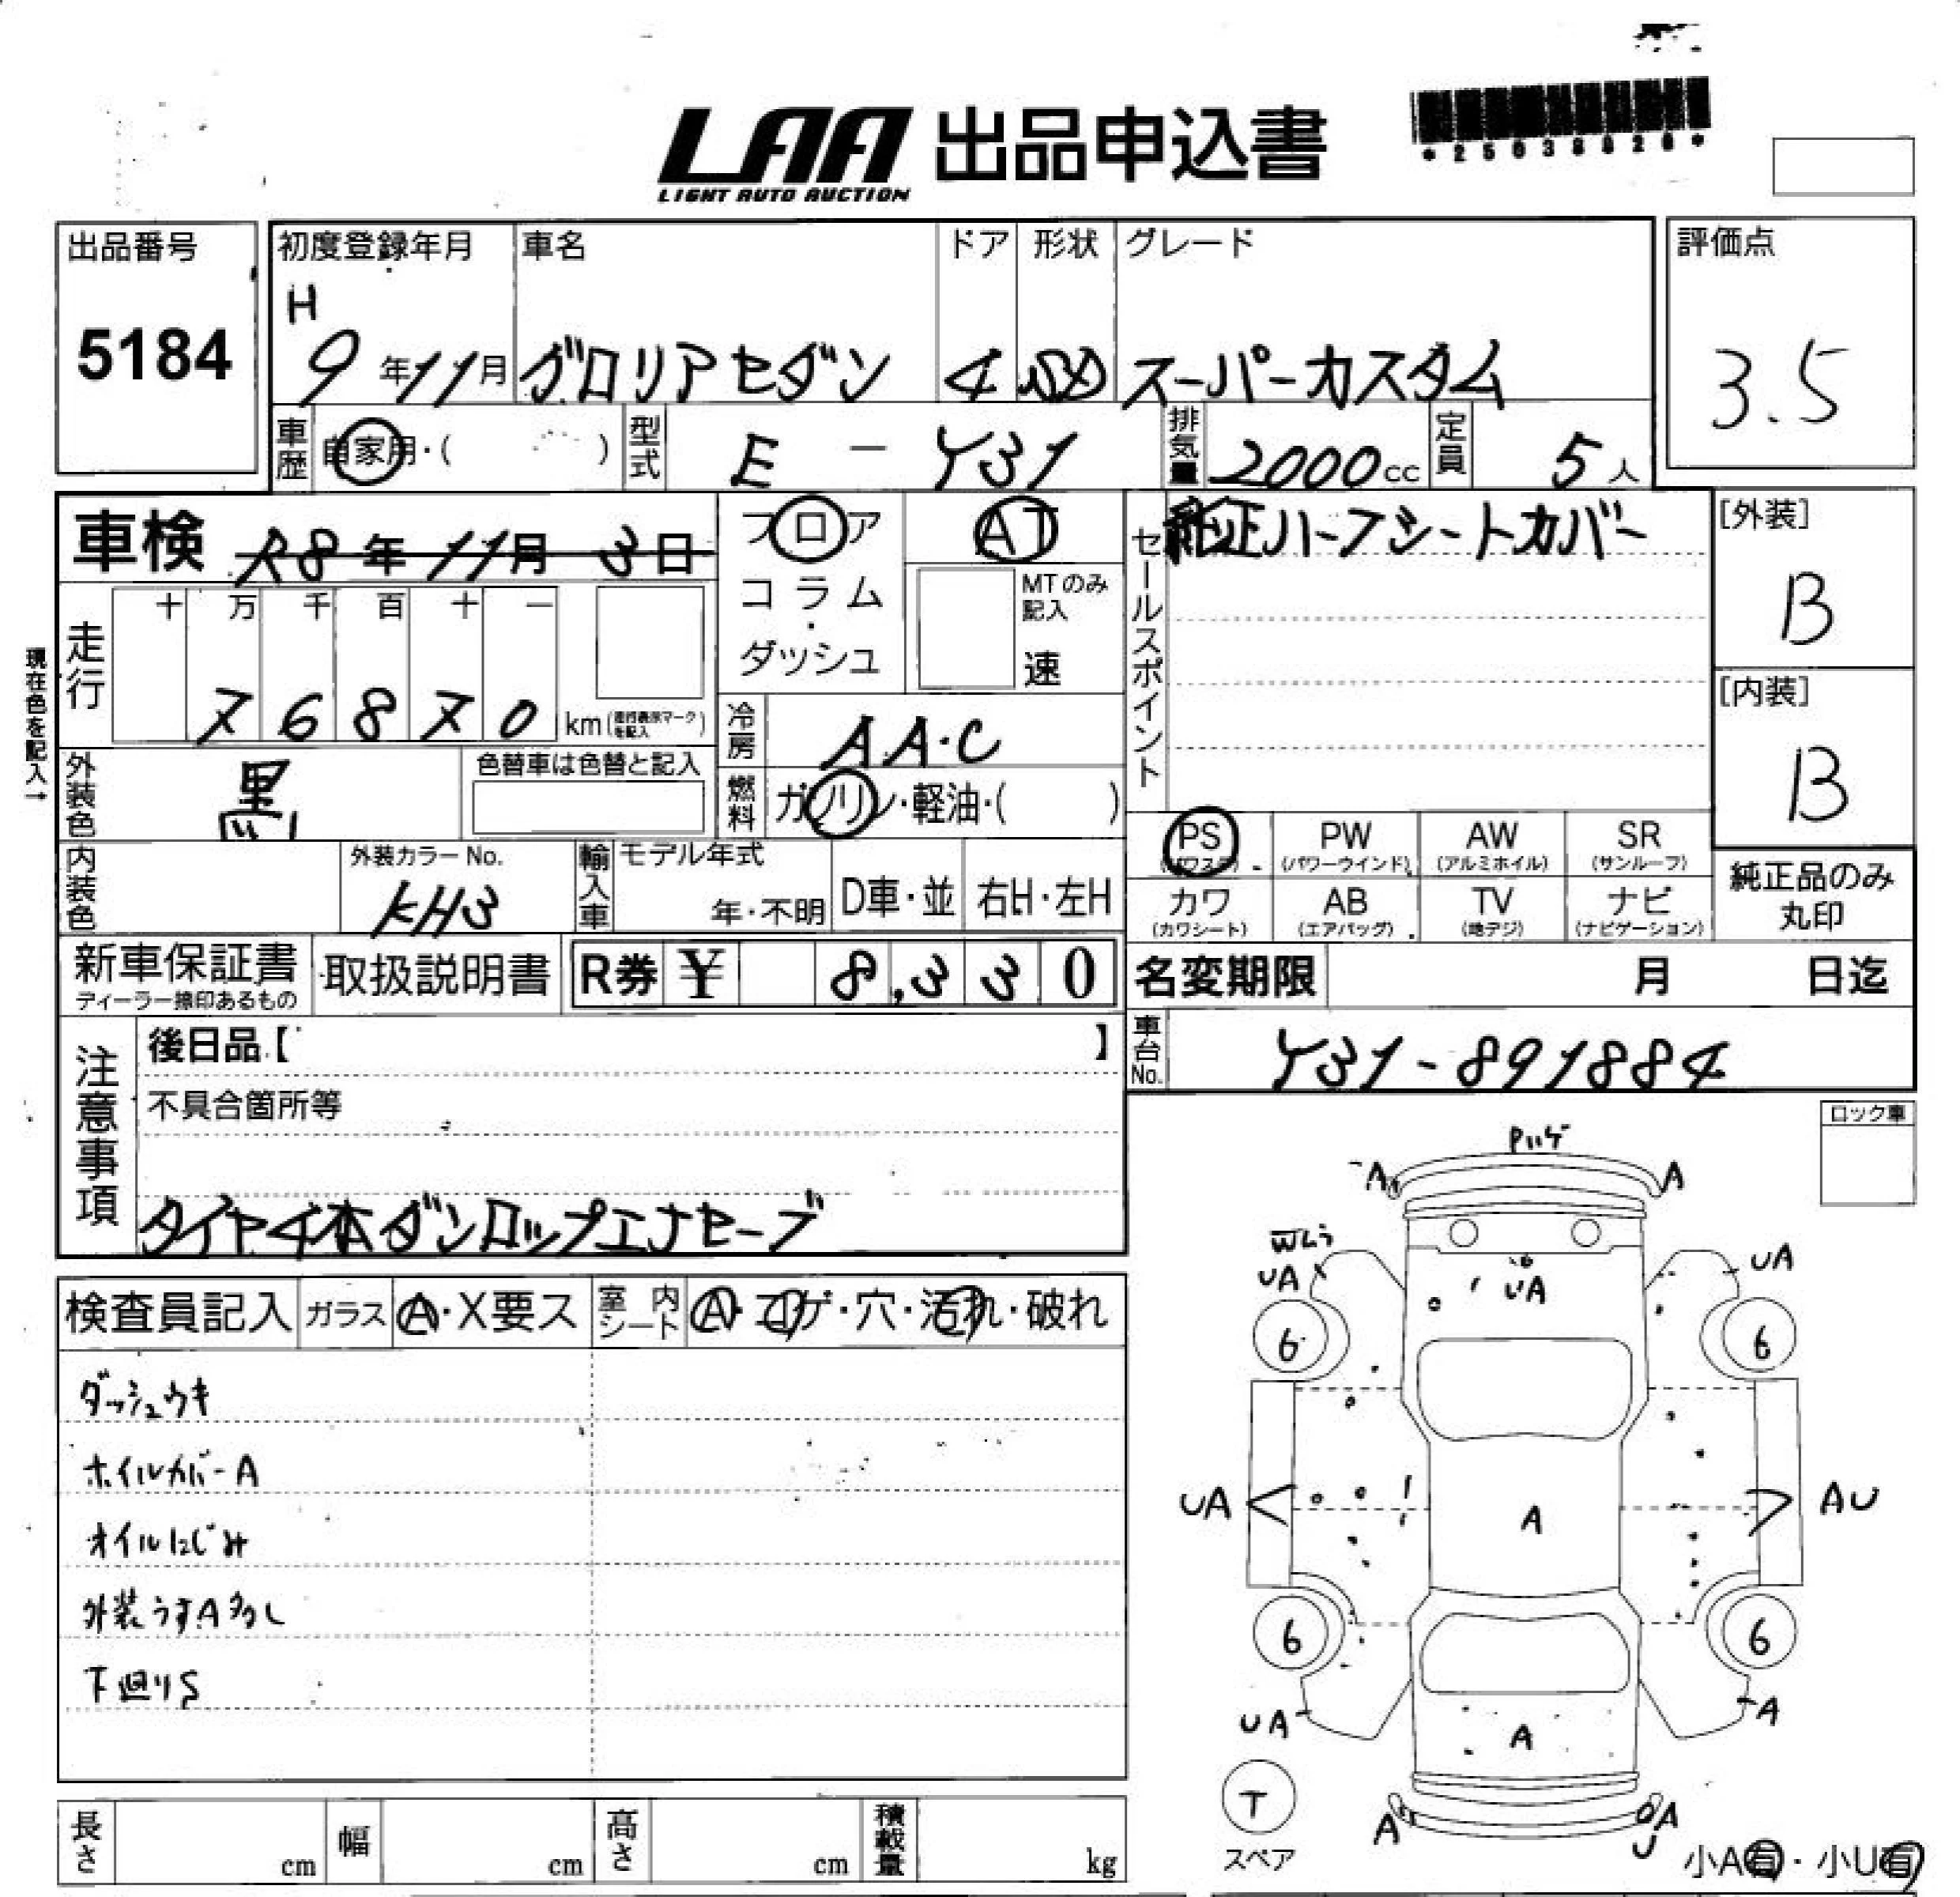 LAA 出品申込書
LIGHT AUTO AUCTION
出品番号
5184
初度登録年月
H
9年11月
車名
グロリアセダン
ドア
4
形状
SD
グレード
スーパーカスタム
評価点
3.5
車歴 自家用・( )
型式 E-Y31
排気量 2000cc
定員 5人
車検 R8年11月3日
フロア
コラム
・
ダッシュ
AT
MTのみ
記入
速
セールスポイント
純正ハーフシートカバー
[外装]
B
現在色を記入→
走行
十 万 千 百 十 一
7 6 8 7 0 km(走行表示マークを記入)
[内装]
B
冷房 AAC
外装色 黒
色替車は色替と記入
燃料 ガソリン・軽油・( )
PS (パワステ)
PW (パワーウインド)
AW (アルミホイル)
SR (サンルーフ)
カワ (カワシート)
AB (エアバッグ)
TV (地デジ)
ナビ (ナビゲーション)
純正品のみ
丸印
内装色
外装カラーNo.
KH3
輸入車
モデル年式
年・不明
D車・並
右H・左H
新車保証書
ディーラー捺印あるもの
取扱説明書
R券 ¥ 8,330
名変期限 月 日迄
車台No. Y31-891884
注意事項
後日品【 】
不具合箇所等
タイヤ4本ダンロップエナセーブ
ロック車
検査員記入
ガラス A・X要ス
室内シート A・コゲ・穴・汚れ・破れ
ダッシュウキ
ホイルカバーA
オイルにじみ
外装うすA多し
下廻りS
Pハゲ
A A
UA UA UA
6 6
UA A AU
6 6
UA A A
T
スペア
A A
U
小A有・小U有
長さ cm
幅 cm
高さ cm
積載量 kg